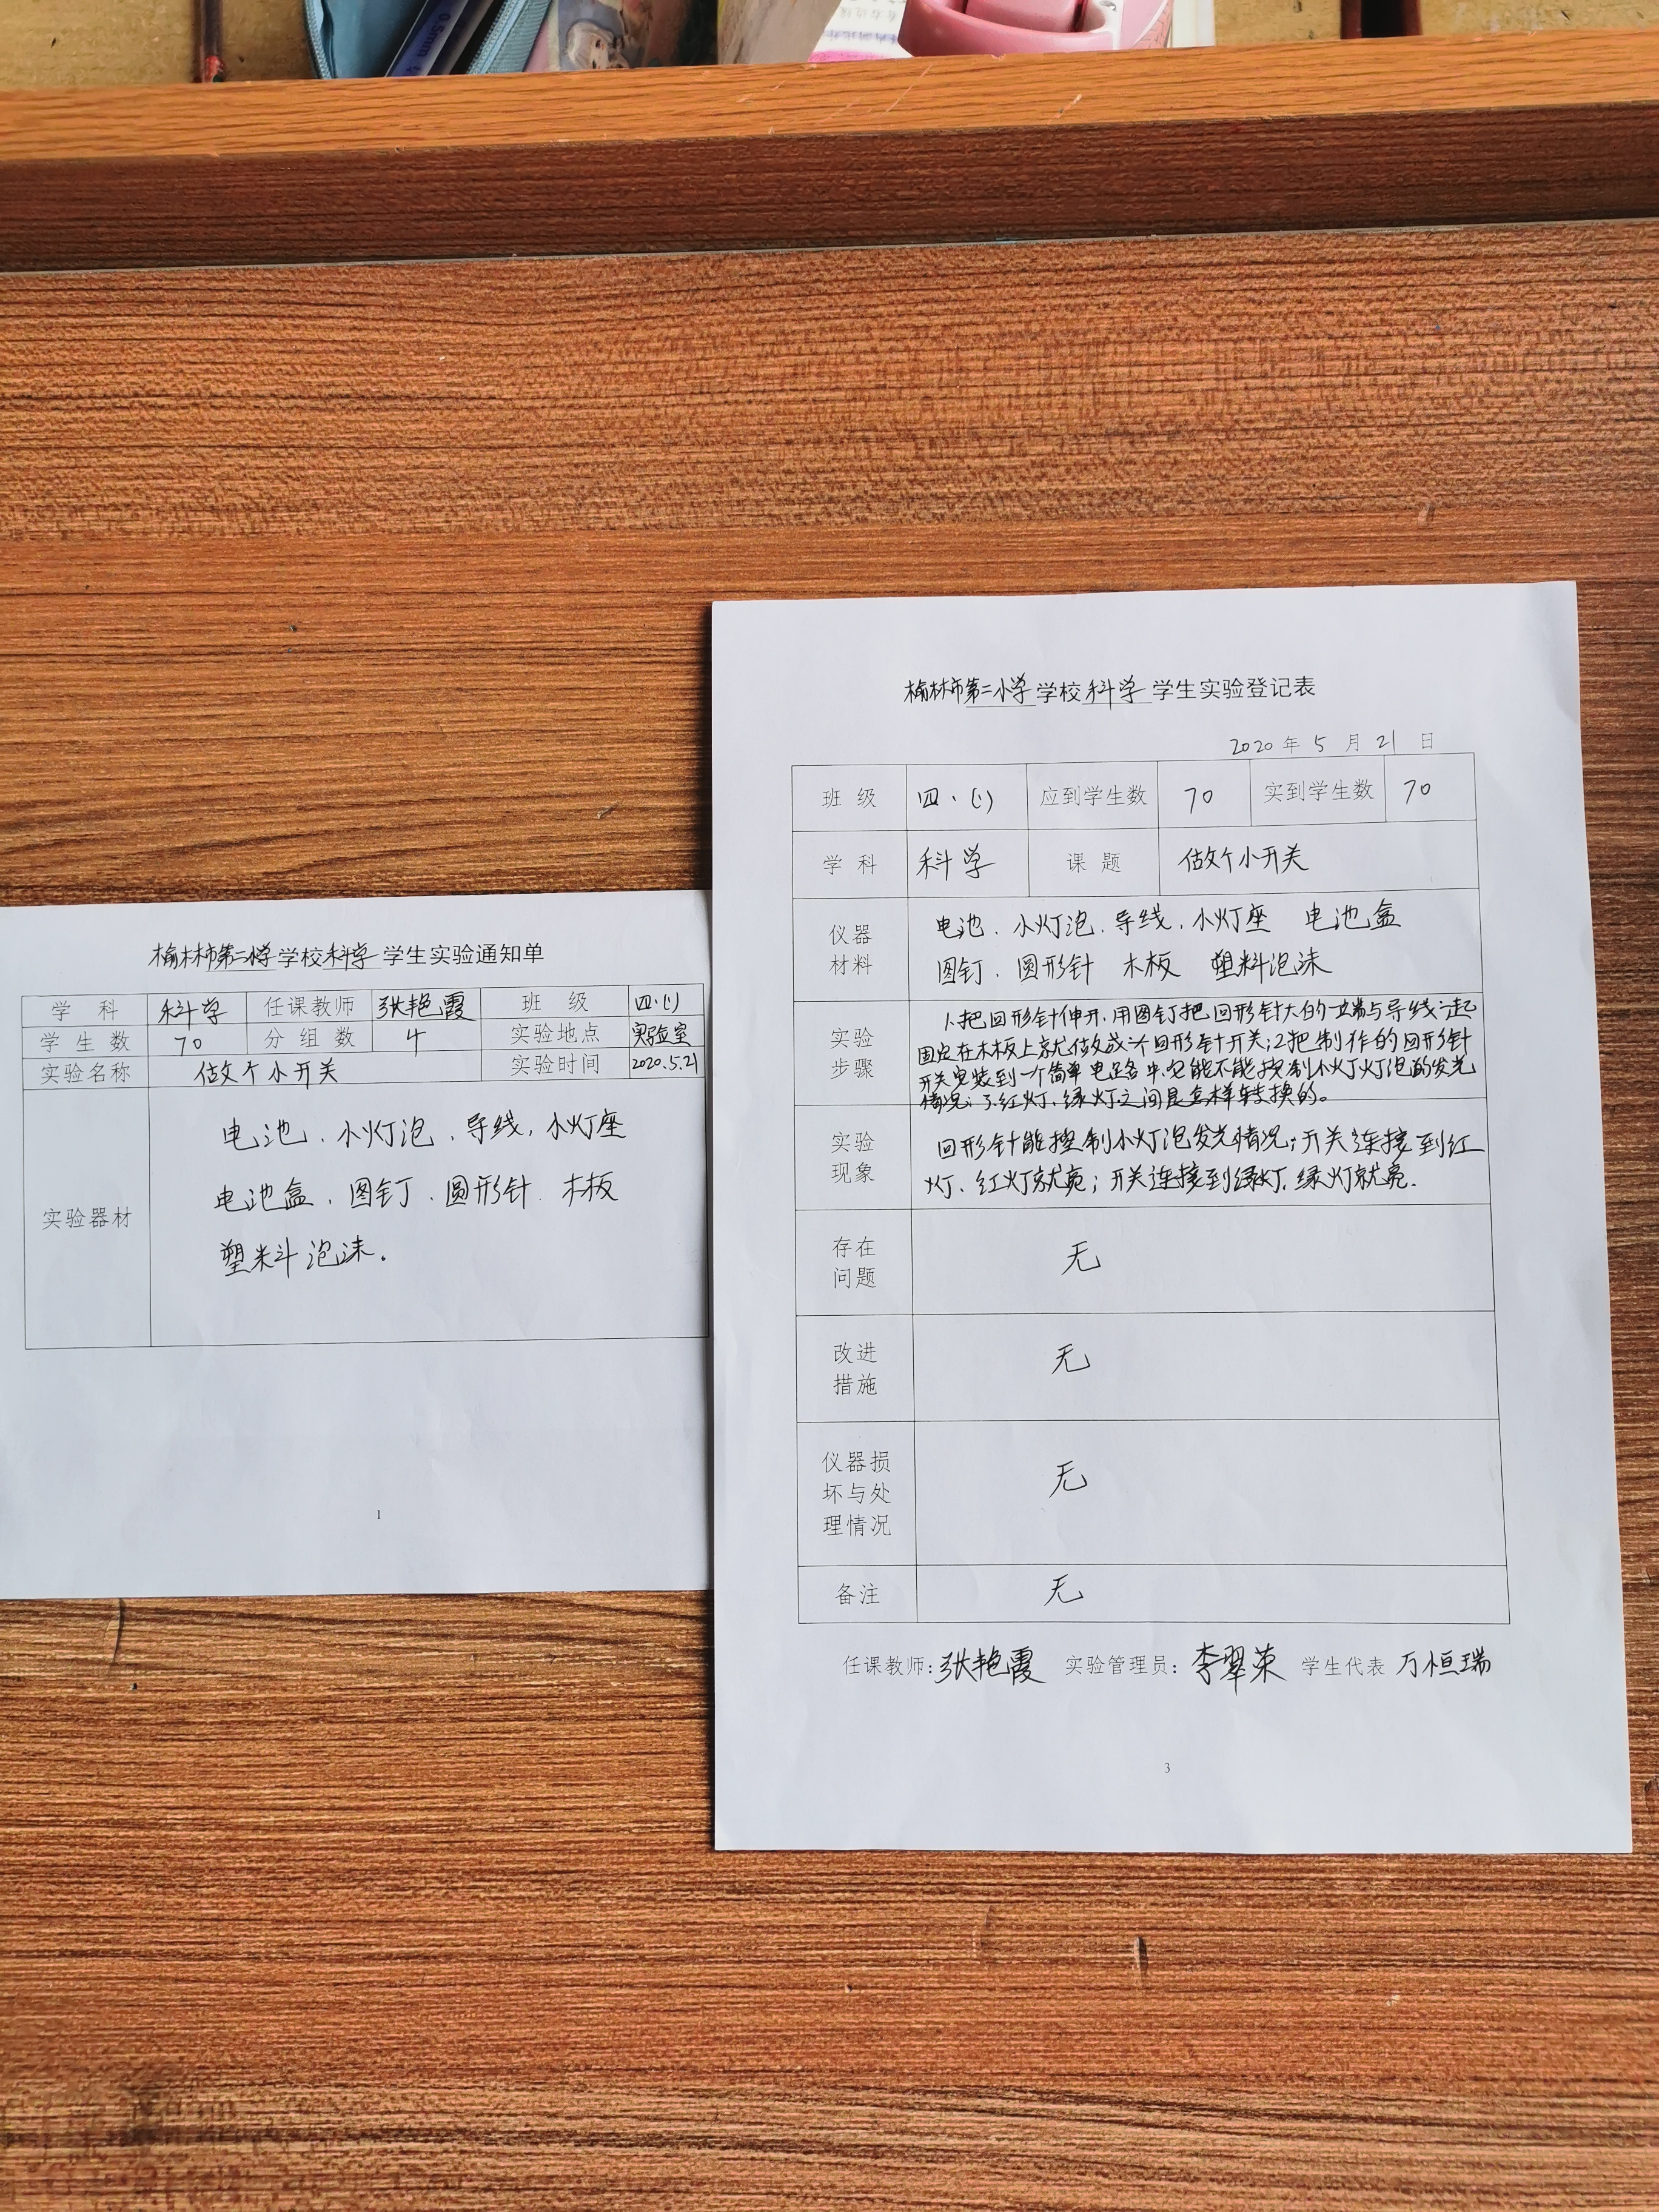 榆林市第二小学学校科学学生实验通知单
学科 科学 任课教师 张艳霞 班级 四.(1)
学生数 70 分组数 4 实验地点 实验室
实验名称 做个小开关 实验时间 2020.5.21
实验器材
电池、小灯泡、导线，小灯座
电池盒、图钉、圆形针、木板
塑料泡沫.
1
榆林市第二小学学校科学学生实验登记表
2020年5月21日
班级 四.(1) 应到学生数 70 实到学生数 70
学科 科学 课题 做个小开关
仪器
材料
电池、小灯泡、导线，小灯座 电池盒
图钉、圆形针 木板 塑料泡沫
实验
步骤
1.把回形针伸开，用图钉把回形针大的一端与导线一起
固定在木板上就做成一个回形针开关；2把制作的回形针
开关安装到一个简单电路中，它能不能控制小灯灯泡的发光
情况；3.红灯、绿灯之间是怎样转换的。
实验
现象
回形针能控制小灯泡发光情况；开关连接到红
灯、红灯就亮；开关连接到绿灯，绿灯就亮.
存在
问题
无
改进
措施
无
仪器损
坏与处
理情况
无
备注 无
任课教师：张艳霞 实验管理员：李翠荣 学生代表 万桓瑞
3